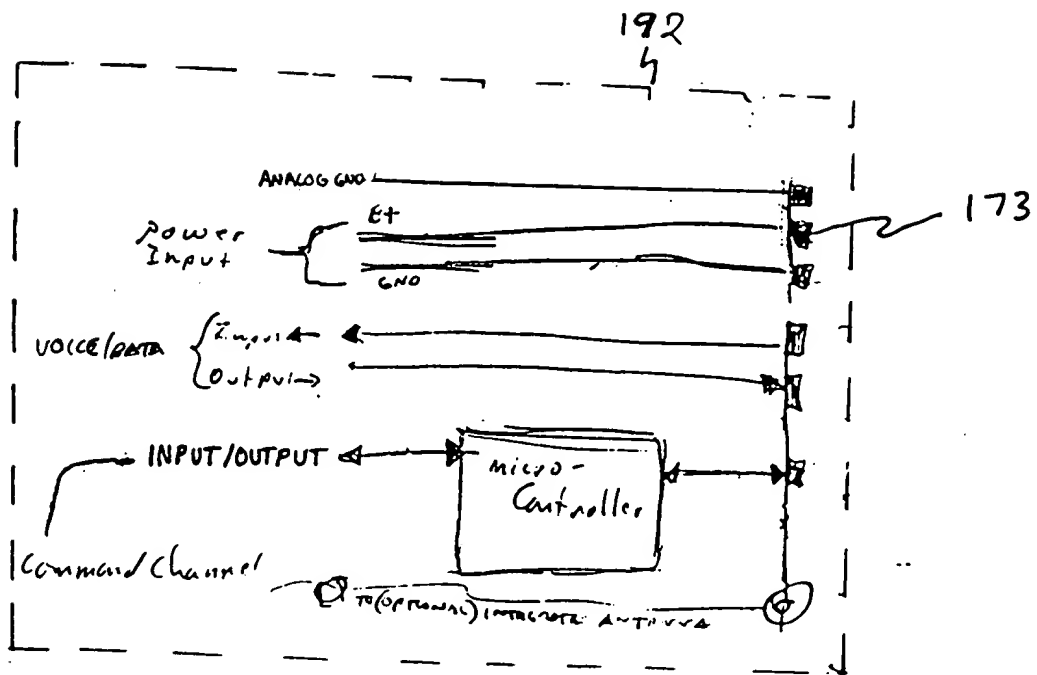 192
ANALOG GND
173
E+
Power
Input
GND
VOICE/DATA
Input
Output
INPUT/OUTPUT
micro-
Controller
Command Channel
TO (OPTIONAL) INTEGRATE ANTENNA